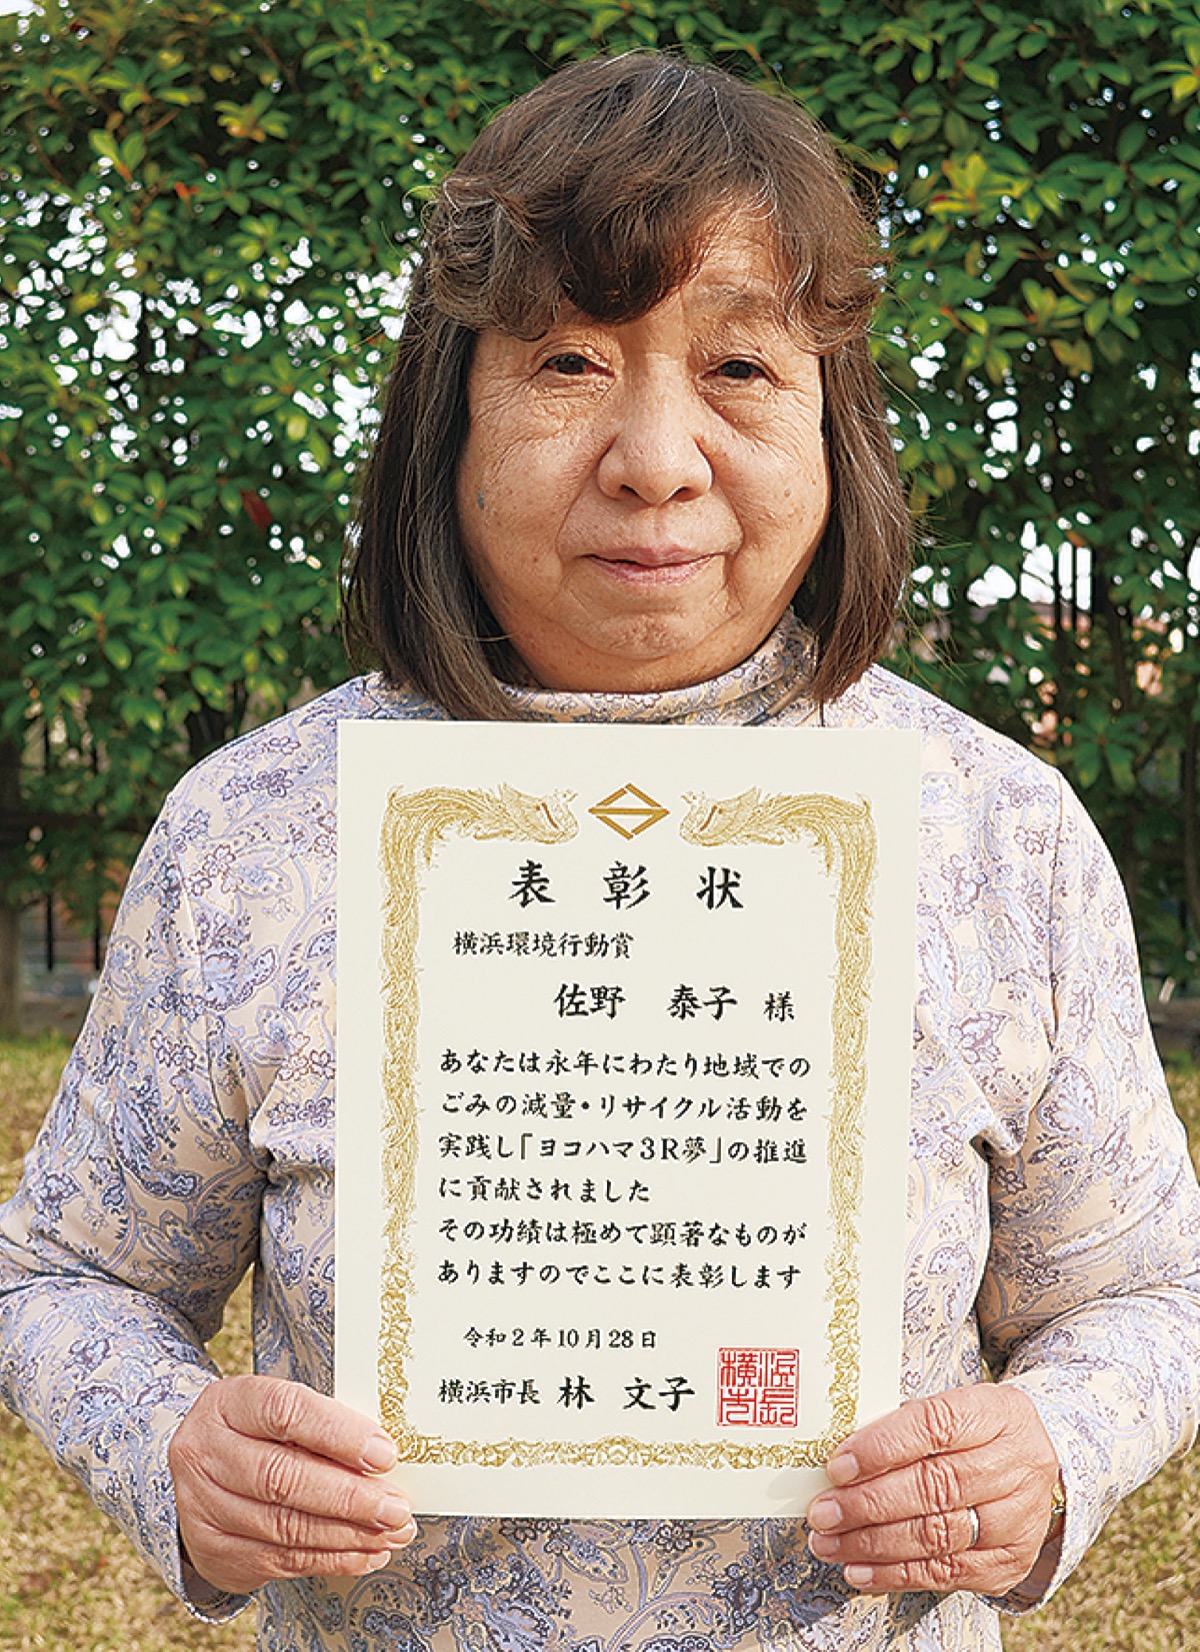 表彰状
横浜環境行動賞
佐野 泰子 様
あなたは永年にわたり地域での
ごみの減量・リサイクル活動を
実践し「ヨコハマ3R夢」の推進
に貢献されました
その功績は極めて顕著なものが
ありますのでここに表彰します
令和2年10月28日
横浜市長 林 文子
横浜市長